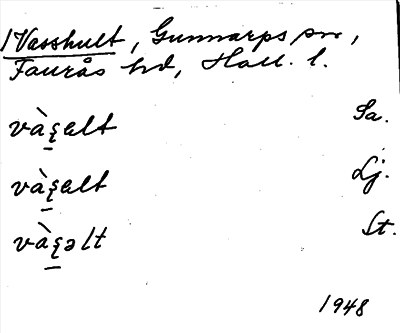 1 Vasshult, Gunnarps sn,
Faurås hd, Hall. l.
và̱ʂɐlt Sa.
và̱ʂɐlt Lj.
và̱ʂəlt St.
1948